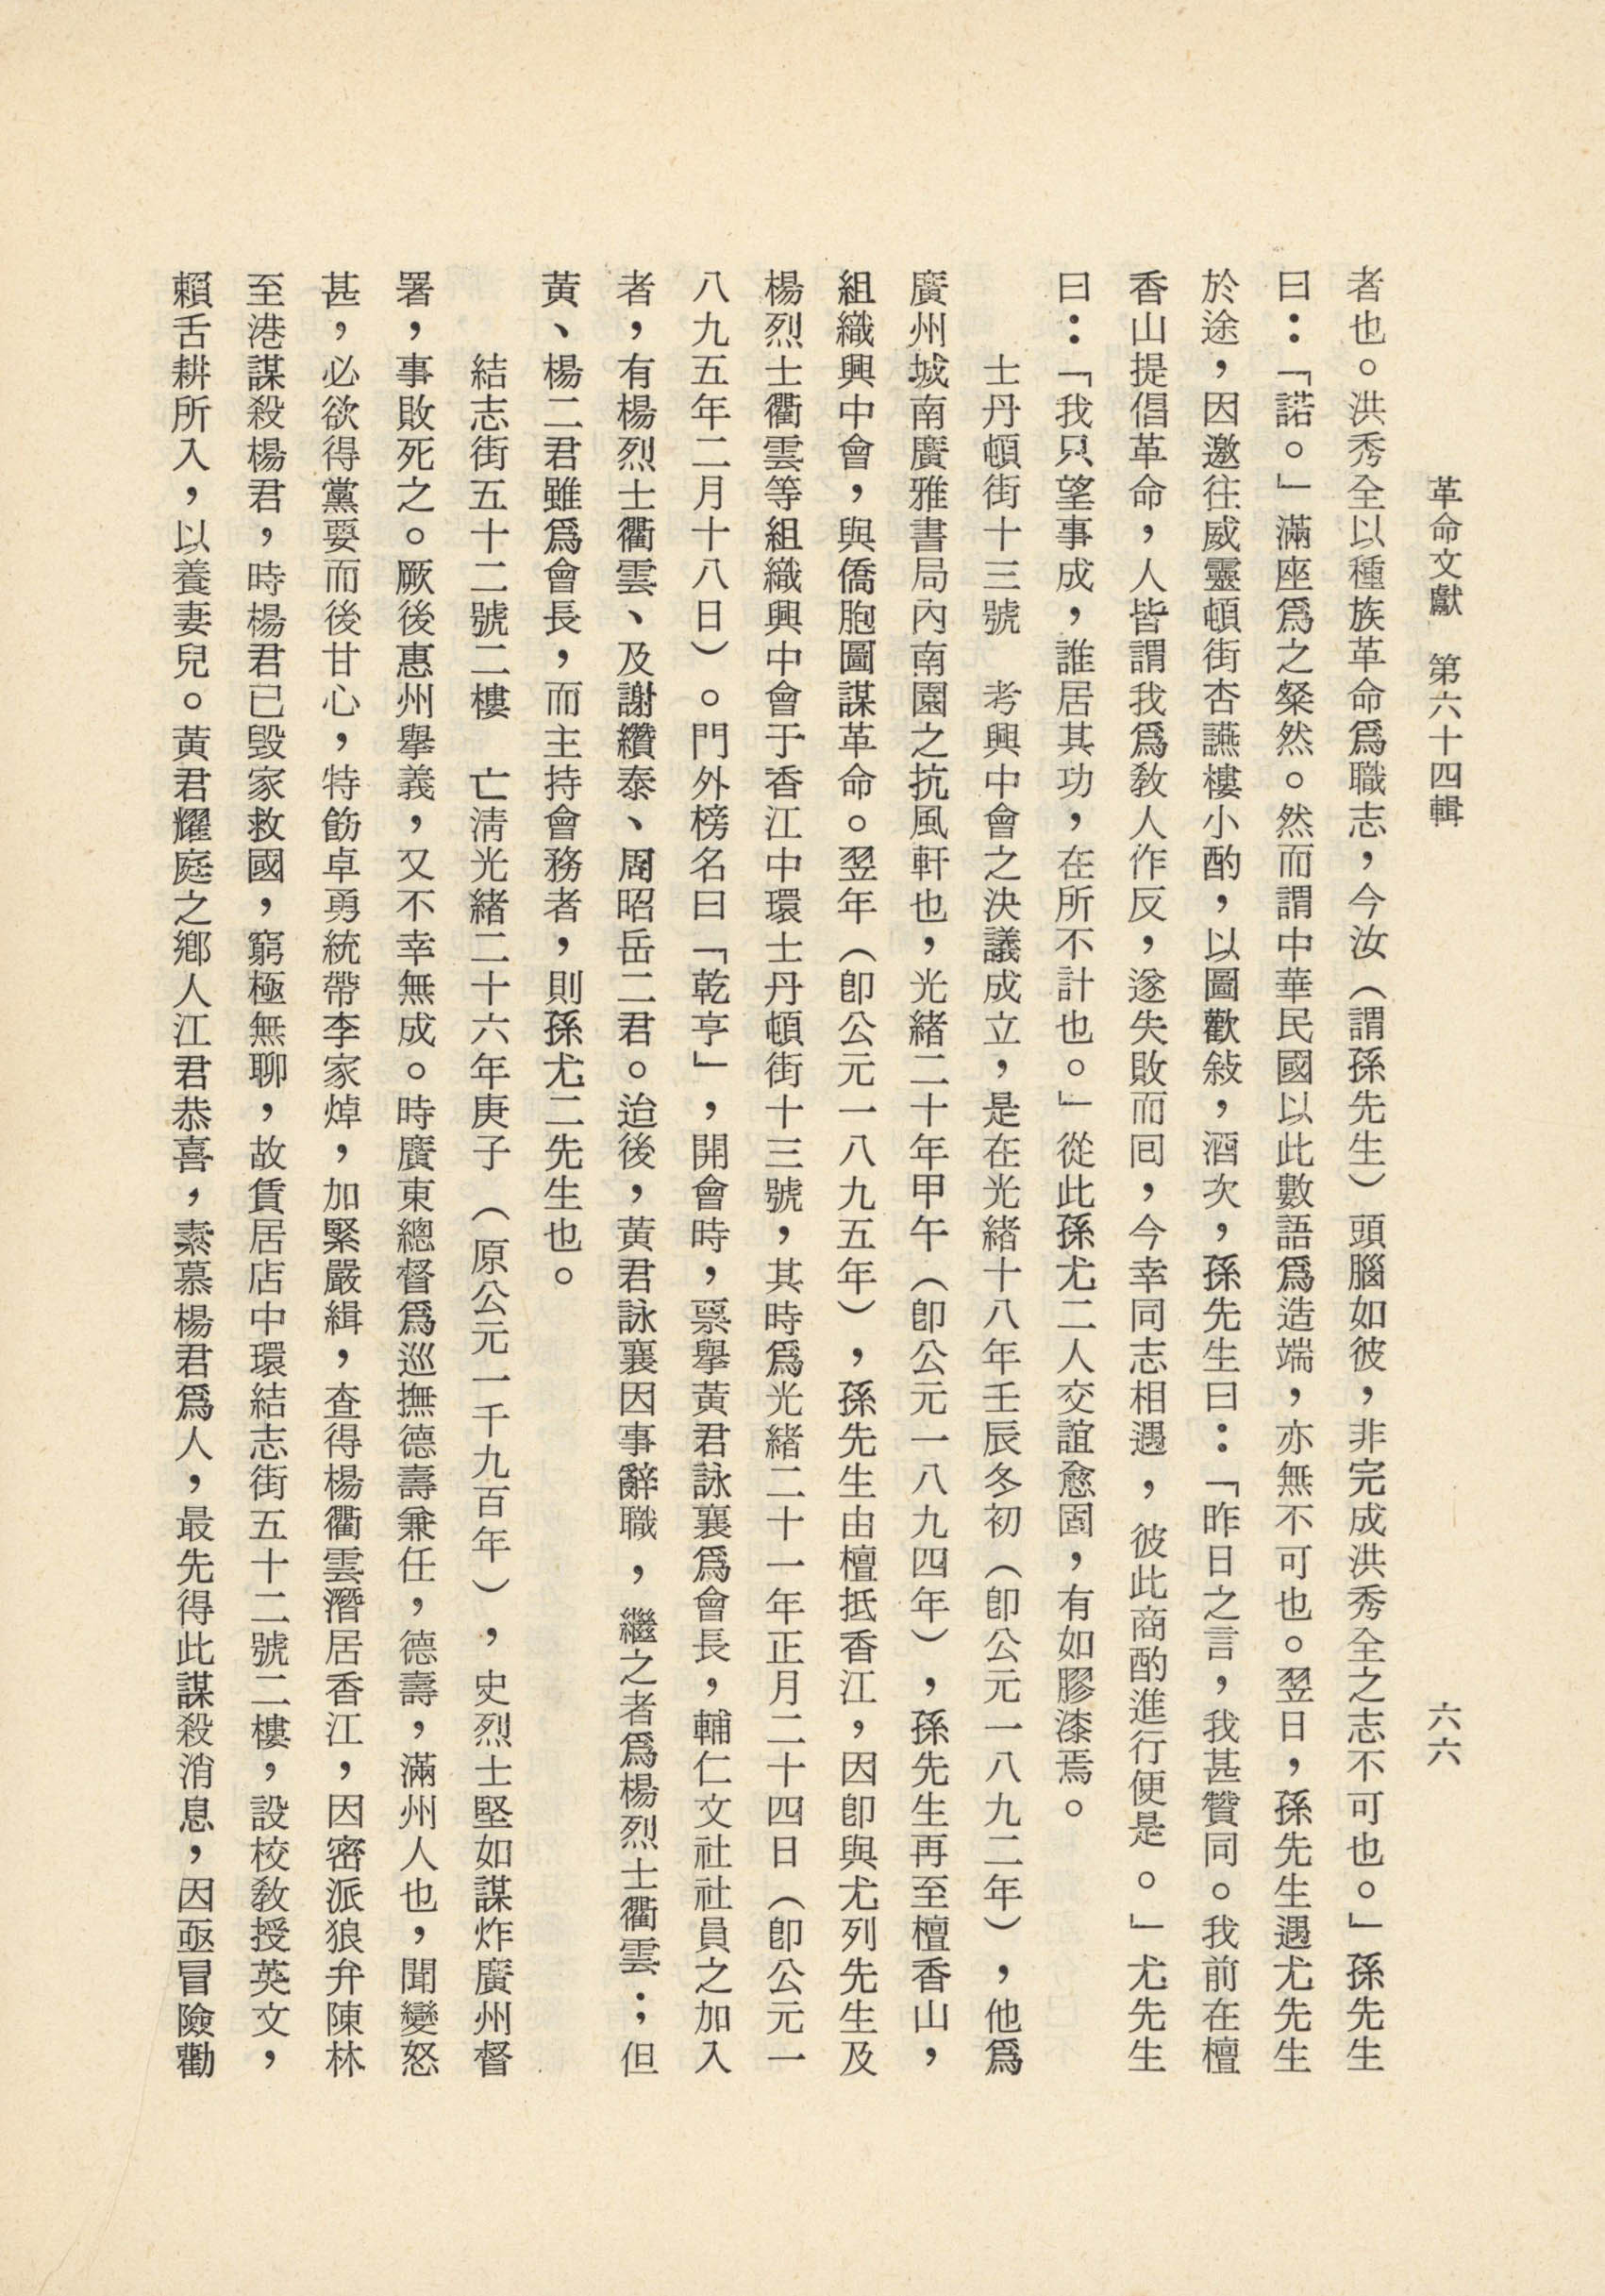 革命文獻　第六十四輯
六六
者也。洪秀全以種族革命爲職志，今汝（謂孫先生）頭腦如彼，非完成洪秀全之志不可也。」孫先生
曰：「諾。」滿座爲之粲然。然而謂中華民國以此數語爲造端，亦無不可也。翌日，孫先生遇尤先生
於途，因邀往威靈頓街杏讌樓小酌，以圖歡敍，酒次，孫先生曰：「昨日之言，我甚贊同。我前在檀
香山提倡革命，人皆謂我爲敎人作反，遂失敗而囘，今幸同志相遇，彼此商酌進行便是。」尤先生
曰：「我只望事成，誰居其功，在所不計也。」從此孫尤二人交誼愈固，有如膠漆焉。
士丹頓街十三號　考興中會之決議成立，是在光緒十八年壬辰冬初（卽公元一八九二年），他爲
廣州城南廣雅書局內南園之抗風軒也，光緒二十年甲午（卽公元一八九四年），孫先生再至檀香山，
組織興中會，與僑胞圖謀革命。翌年（卽公元一八九五年），孫先生由檀抵香江，因卽與尤列先生及
楊烈士衢雲等組織興中會于香江中環士丹頓街十三號，其時爲光緒二十一年正月二十四日（卽公元一
八九五年二月十八日）。門外榜名曰「乾亨」，開會時，票擧黃君詠襄爲會長，輔仁文社社員之加入
者，有楊烈士衢雲、及謝纘泰、周昭岳二君。迨後，黃君詠襄因事辭職，繼之者爲楊烈士衢雲；但
黃、楊二君雖爲會長，而主持會務者，則孫尤二先生也。
結志街五十二號二樓　亡淸光緒二十六年庚子（原公元一千九百年），史烈士堅如謀炸廣州督
署，事敗死之。厥後惠州擧義，又不幸無成。時廣東總督爲巡撫德壽兼任，德壽，滿州人也，聞變怒
甚，必欲得黨要而後甘心，特飭卓勇統帶李家焯，加緊嚴緝，查得楊衢雲潛居香江，因密派狼弁陳林
至港謀殺楊君，時楊君已毀家救國，窮極無聊，故賃居店中環結志街五十二號二樓，設校敎授英文，
賴舌耕所入，以養妻兒。黃君耀庭之鄕人江君恭喜，素慕楊君爲人，最先得此謀殺消息，因亟冒險勸